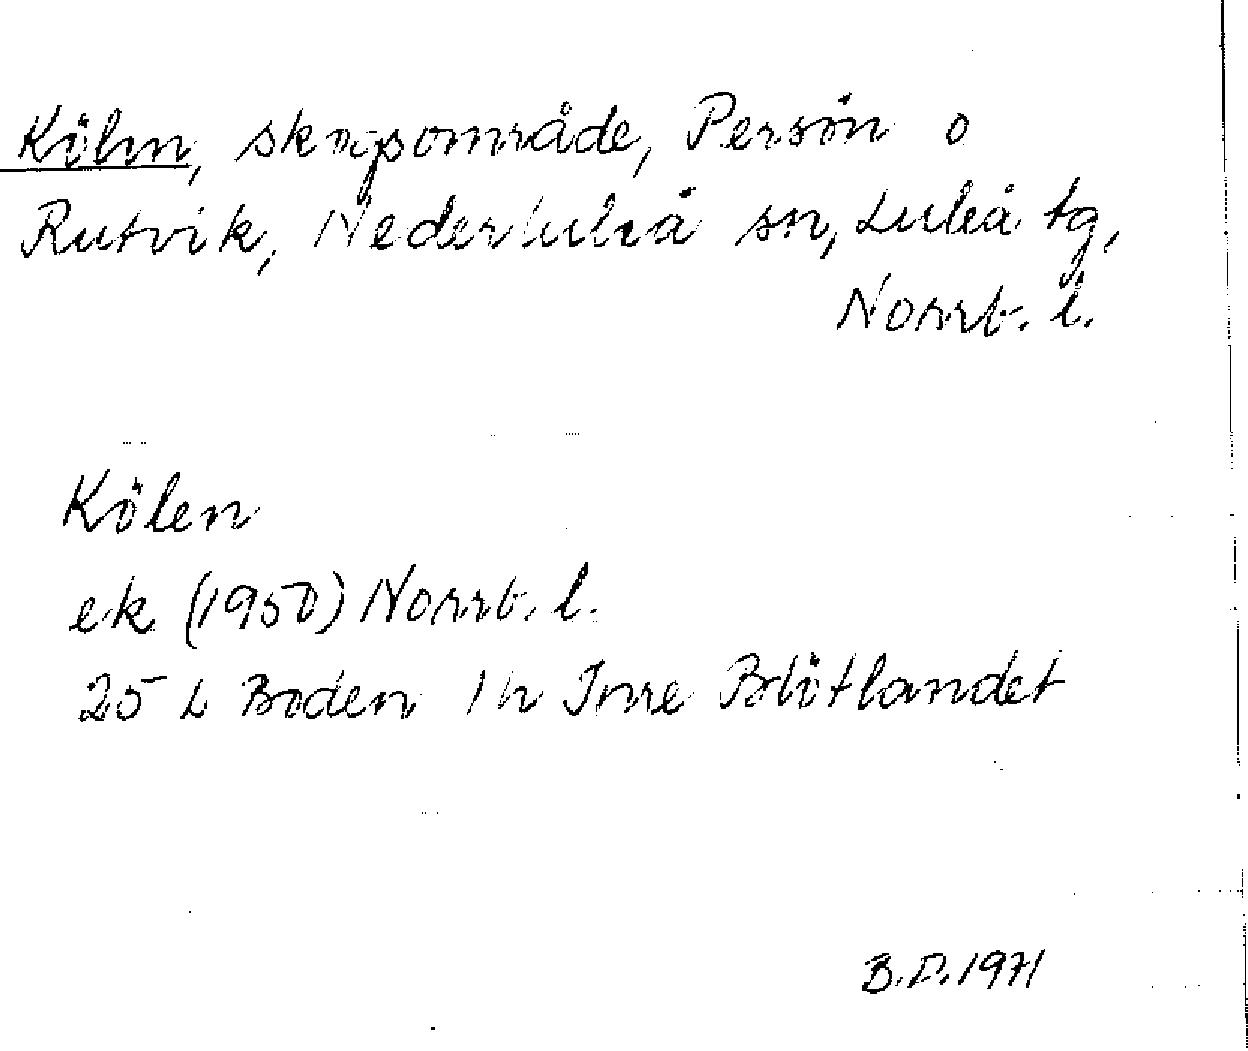 Kölen, skogsområde, Persön o
Rutvik, Nederluleå sn, Luleå tg,
Norrb. l.
Kölen
ek (1950) Norrb. l.
25 L Boden 1 h Inre Blötlandet
B.D. 1971